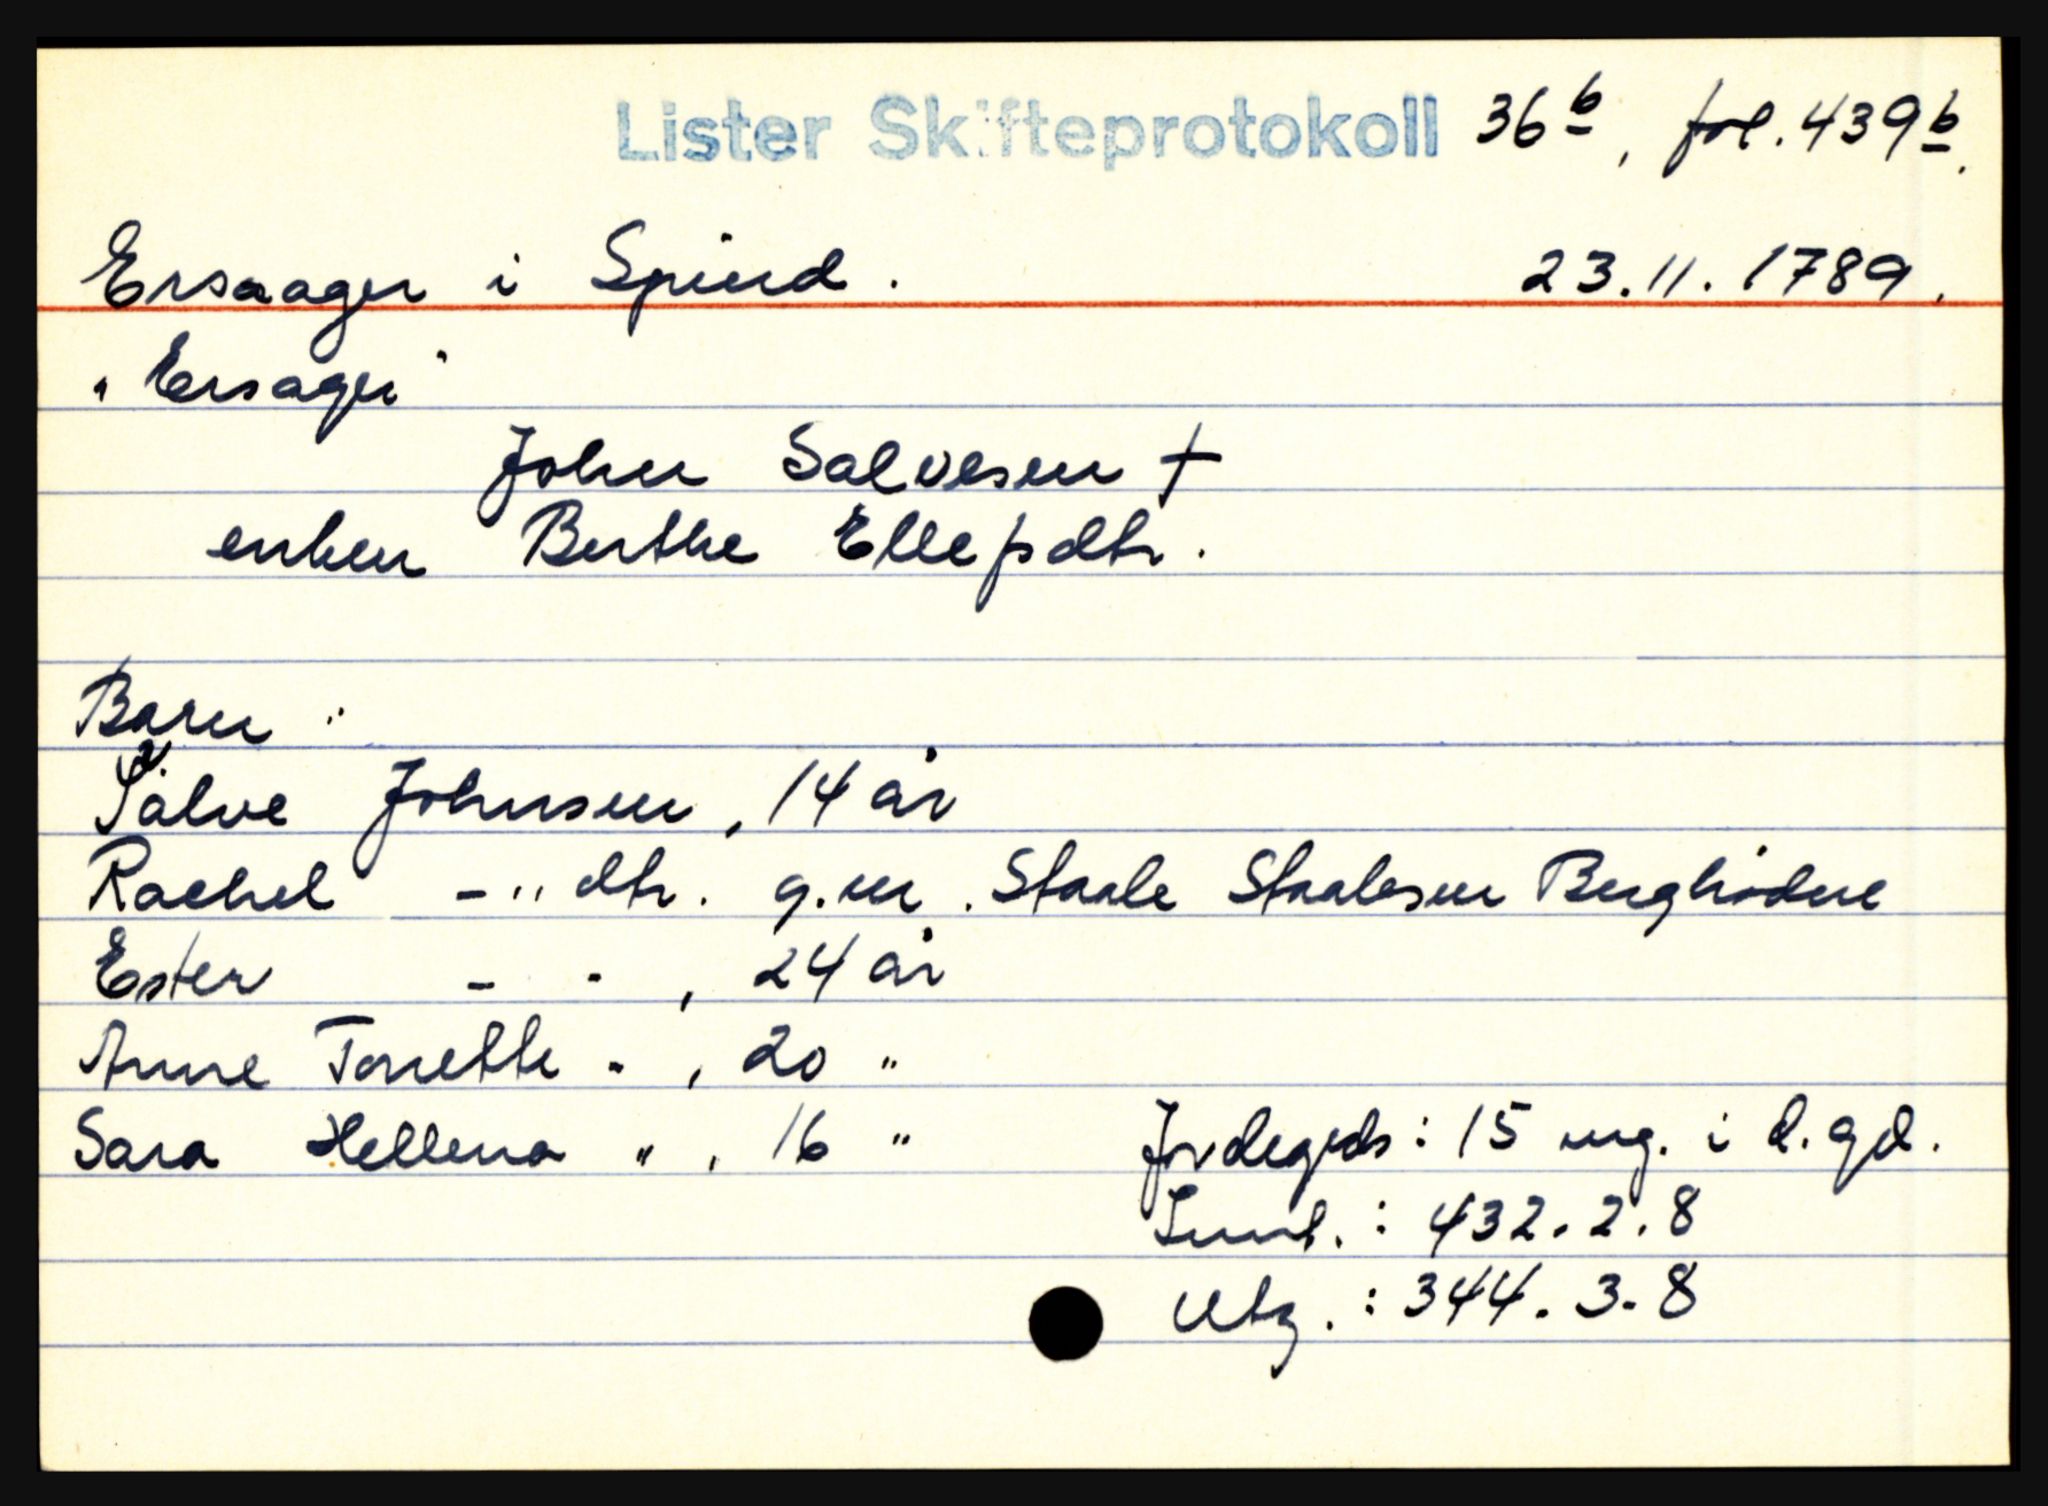 Lister Skifteprotokoll 36 b, fol. 439 b.
Ersaager i Spind. 23.11.1789.
"Ersager"
John Salvesen †
enken Berthe Ellefsdtr.
Barn:
Salve Johnsen, 14 år
Rachel -"dtr. g.m. Staale Staalesen
Ester - " , 24 år
Anne Tonette " , 20 "
Sara Hellena " , 16 " Jordegods: 15 mrg. i d. gd.
: 432.2.8
Utg.: 344.3.8